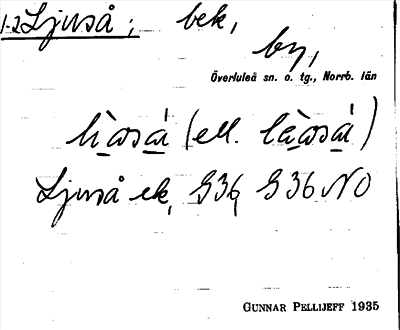 1-2 Ljuså; bek,
by,
Överluleå sn. o. tg., Norrb. län
(ell.
Ljuså ek, G36, G36 NO
GUNNAR PELLIJEFF 1935